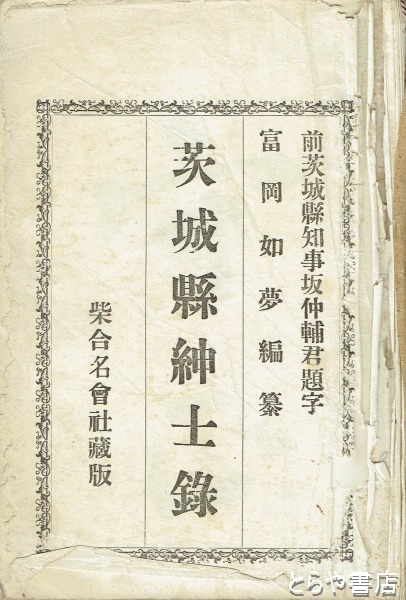 前茨城縣知事坂仲輔君題字
富岡如夢編纂
茨城縣紳士錄
柴合名會社藏版
とらや書店